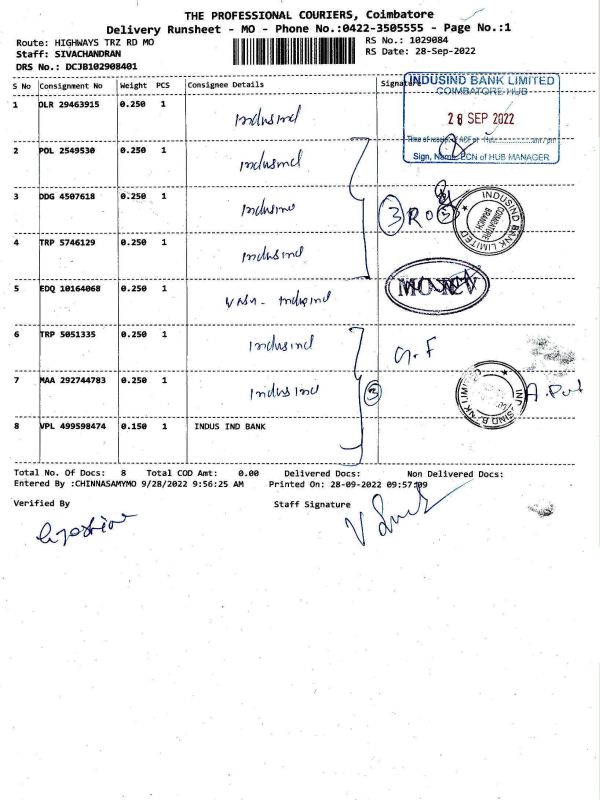 THE PROFESSIONAL COURIERS, Coimbatore
Delivery Runsheet - MO - Phone No.:0422-3505555 - Page No.:1
Route: HIGHWAYS TRZ RD MO RS No.: 1029084
Staff: SIVACHANDRAN RS Date: 28-Sep-2022
DRS No.: DCJB102908401
S No Consignment No Weight PCS Consignee Details Signature
INDUSIND BANK LIMITED
COIMBATORE HUB
28 SEP 2022
Sign, Name, ECN of HUB MANAGER
1 OLR 29463915 0.250 1 Indusind
2 POL 2549530 0.250 1 Indusind
3 DDG 4507618 0.250 1 Indusind
3 RO 3
INDUSIND BANK LIMITED
COIMBATORE BRANCH
4 TRP 5746129 0.250 1 Indusind
5 EDQ 10164068 0.250 1 Indusind
6 TRP 5051335 0.250 1 Indusind
G.F
7 MAA 292744783 0.250 1 Indusind
3
8 VPL 499598474 0.150 1 INDUS IND BANK
Total No. Of Docs: 8 Total COD Amt: 0.00 Delivered Docs: Non Delivered Docs:
Entered By :CHINNASAMYMO 9/28/2022 9:56:25 AM Printed On: 28-09-2022 09:57:09
Verified By Staff Signature